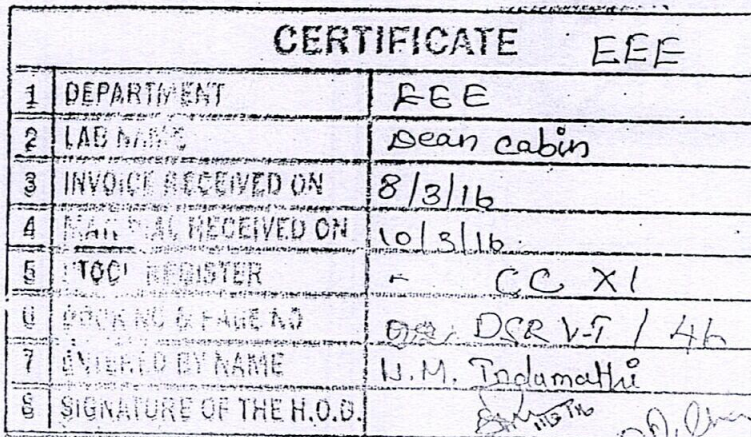 CERTIFICATE EEE
1 DEPARTMENT EEE
2 LAB NAME Dean cabin
3 INVOICE RECEIVED ON 8/3/16
4 MATERIAL RECEIVED ON 10/3/16.
5 STOCK REGISTER - CC XI
6 BOOK NO & PAGE NO DSR V-I / 46
7 ENTERED BY NAME N.M. Indumathi
8 SIGNATURE OF THE H.O.D.